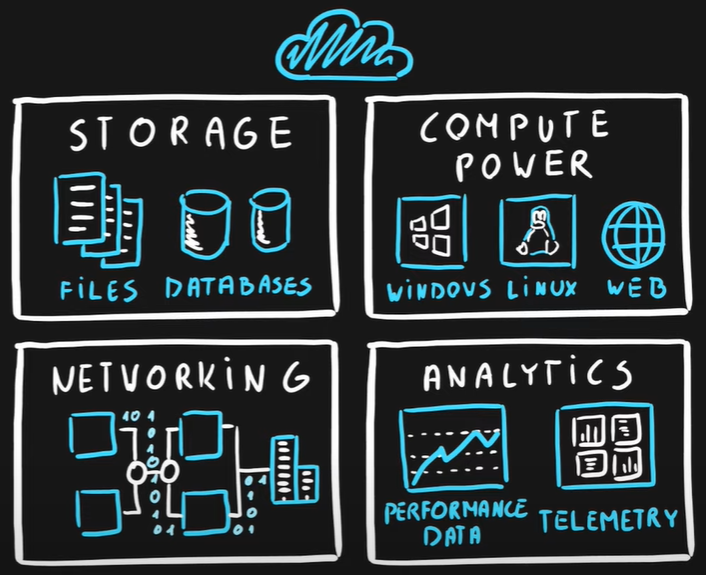 STORAGE
FiLES
DATABASES
COMPUTE
POWER
WiNDOWS
LiNUX
WEB
NETWORKiNG
10 1
0
1
0
1
0
0 1
0 1
1
0
0 1
ANALYTiCS
PERFORMANCE
DATA
TELEMETRY